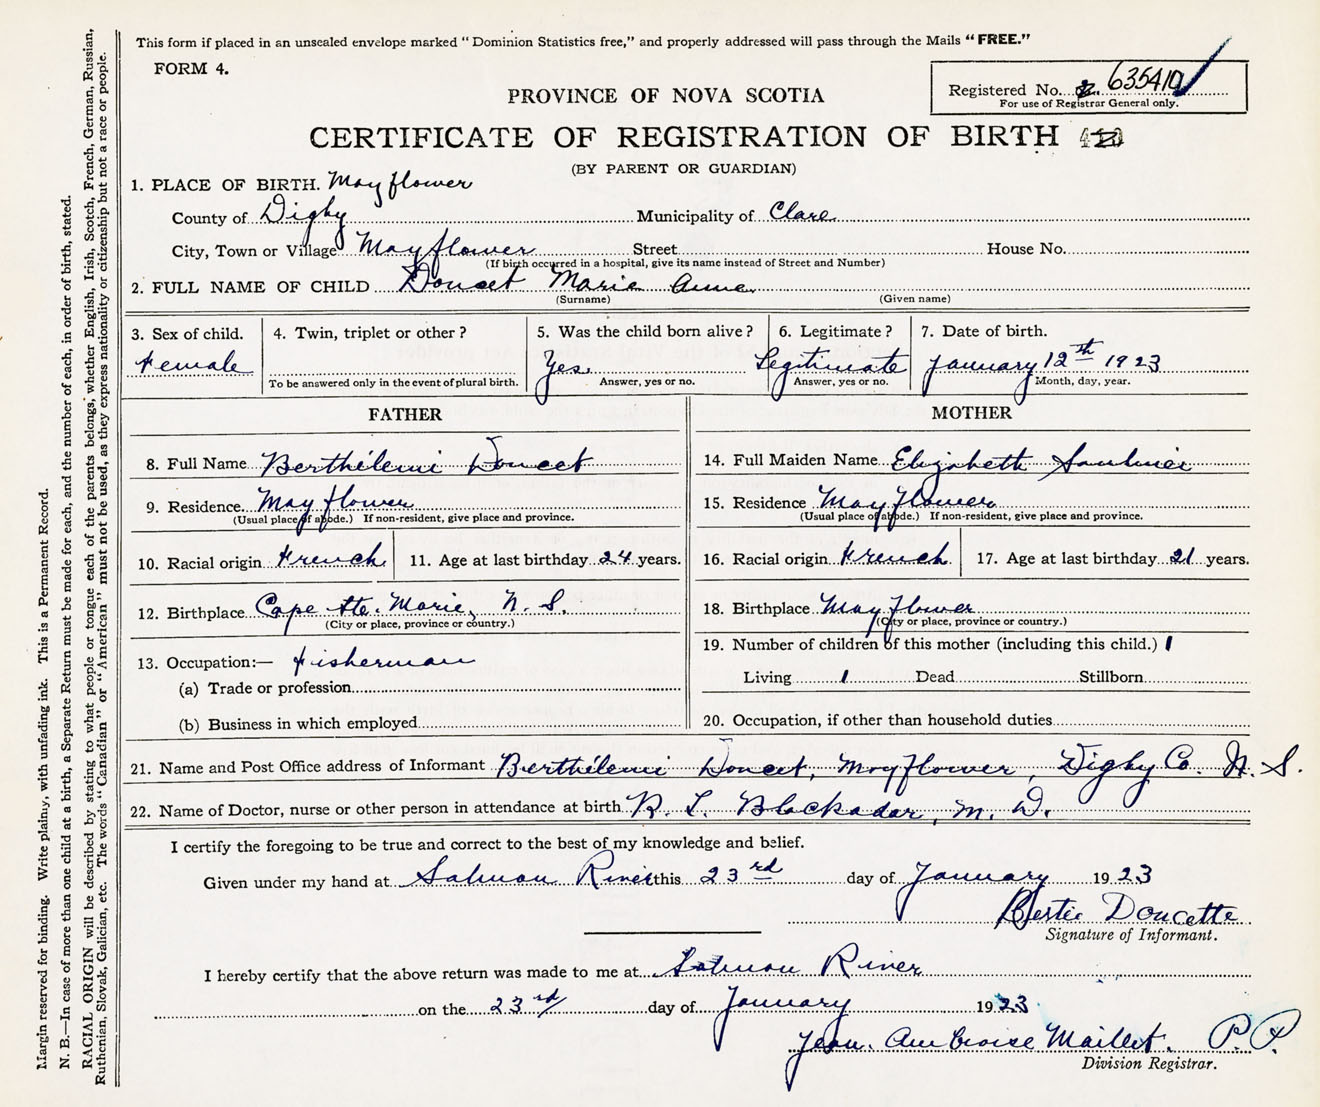 This form if placed in an unsealed envelope marked "Dominion Statistics free," and properly addressed will pass through the Mails "FREE."
FORM 4.
Registered No. 635410
For use of Registrar General only.
PROVINCE OF NOVA SCOTIA
CERTIFICATE OF REGISTRATION OF BIRTH
(BY PARENT OR GUARDIAN)
1. PLACE OF BIRTH. Mayflower
County of Digby Municipality of Clare
City, Town or Village Mayflower Street House No.
(If birth occurred in a hospital, give its name instead of Street and Number)
2. FULL NAME OF CHILD Doucet Marie Anne
(Surname) (Given name)
3. Sex of child. 4. Twin, triplet or other? 5. Was the child born alive? 6. Legitimate? 7. Date of birth.
Female Yes. Legitimate January 12th 1923
To be answered only in the event of plural birth. Answer, yes or no. Answer, yes or no. Month, day, year.
FATHER MOTHER
8. Full Name Berthélemi Doucet 14. Full Maiden Name Elizabeth Saulnier
9. Residence Mayflower 15. Residence Mayflower
(Usual place of abode.) If non-resident, give place and province. (Usual place of abode.) If non-resident, give place and province.
10. Racial origin French 11. Age at last birthday 24 years. 16. Racial origin French 17. Age at last birthday 21 years.
12. Birthplace Cape Ste. Marie, N. S. 18. Birthplace Mayflower
(City or place, province or country.) (City or place, province or country.)
19. Number of children of this mother (including this child.) 1
13. Occupation:— Fisherman
Living 1 Dead Stillborn
(a) Trade or profession
(b) Business in which employed 20. Occupation, if other than household duties
21. Name and Post Office address of Informant Berthélemi Doucet, Mayflower, Digby Co. N. S.
22. Name of Doctor, nurse or other person in attendance at birth R. L. Blackadar, M. D.
I certify the foregoing to be true and correct to the best of my knowledge and belief.
Given under my hand at Salmon River this 23rd day of January 1923
Bertie Doucette
Signature of Informant.
I hereby certify that the above return was made to me at Salmon River
on the 23rd day of January 1923
Jean Ambroise Maillet. P.P.
Division Registrar.
Margin reserved for binding. Write plainly, with unfading ink. This is a Permanent Record.
N. B.—In case of more than one child at a birth, a Separate Return must be made for each, and the number of each, in order of birth, stated.
RACIAL ORIGIN will be described by stating to what people or tongue each of the parents belongs, whether English, Irish, Scotch, French, German, Russian,
Ruthenian, Slovak, Galician, etc. The words "Canadian" or "American" must not be used, as they express nationality or citizenship but not a race or people.